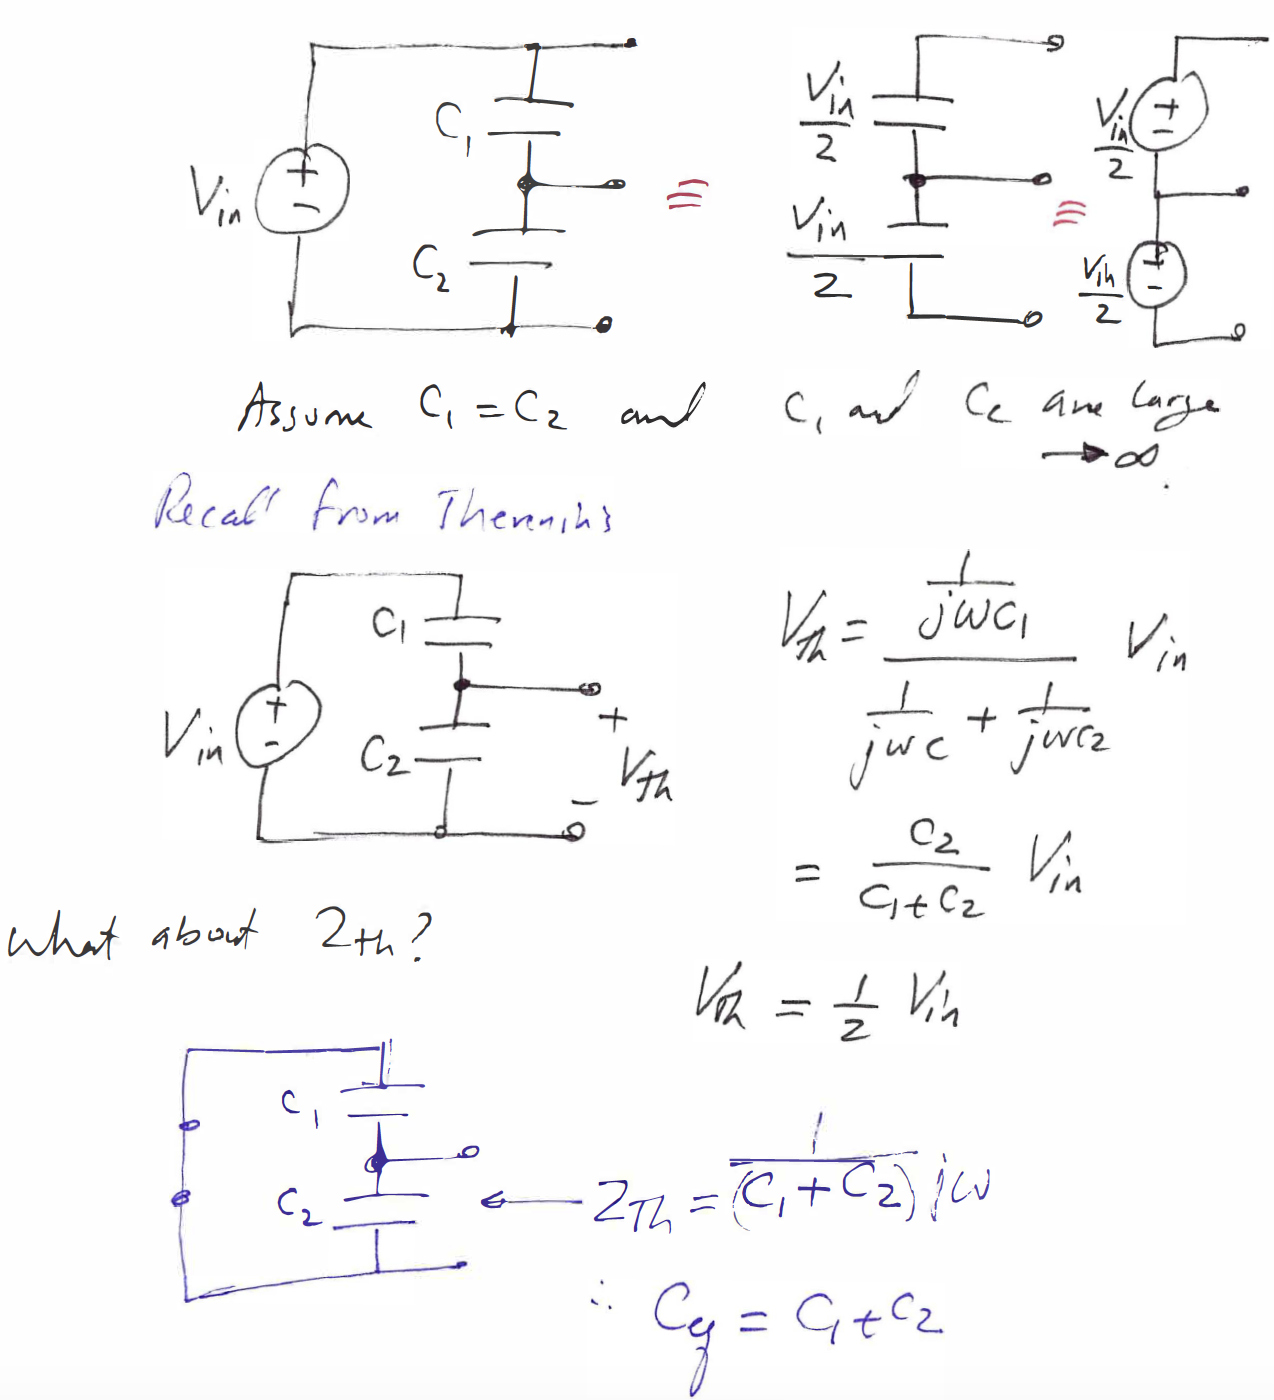 V_in + − C₁ C₂ ≡ V_in/2 V_in/2 ≡ V_in/2 + − V_in/2 + −
Assume C₁ = C₂ and C₁ and C_c are large
→ ∞.
Recall from Thevenin's
V_in + − C₁ C₂ + V_th −
V_Th = (1/(jωC₁)) / (1/(jωC) + 1/(jωC₂)) V_in
= C₂/(C₁+C₂) V_in
What about Z_Th?
V_Th = 1/2 V_in
C₁ C₂ ← Z_Th = 1/((C₁+C₂)jω)
∴ C_eq = C₁+C₂